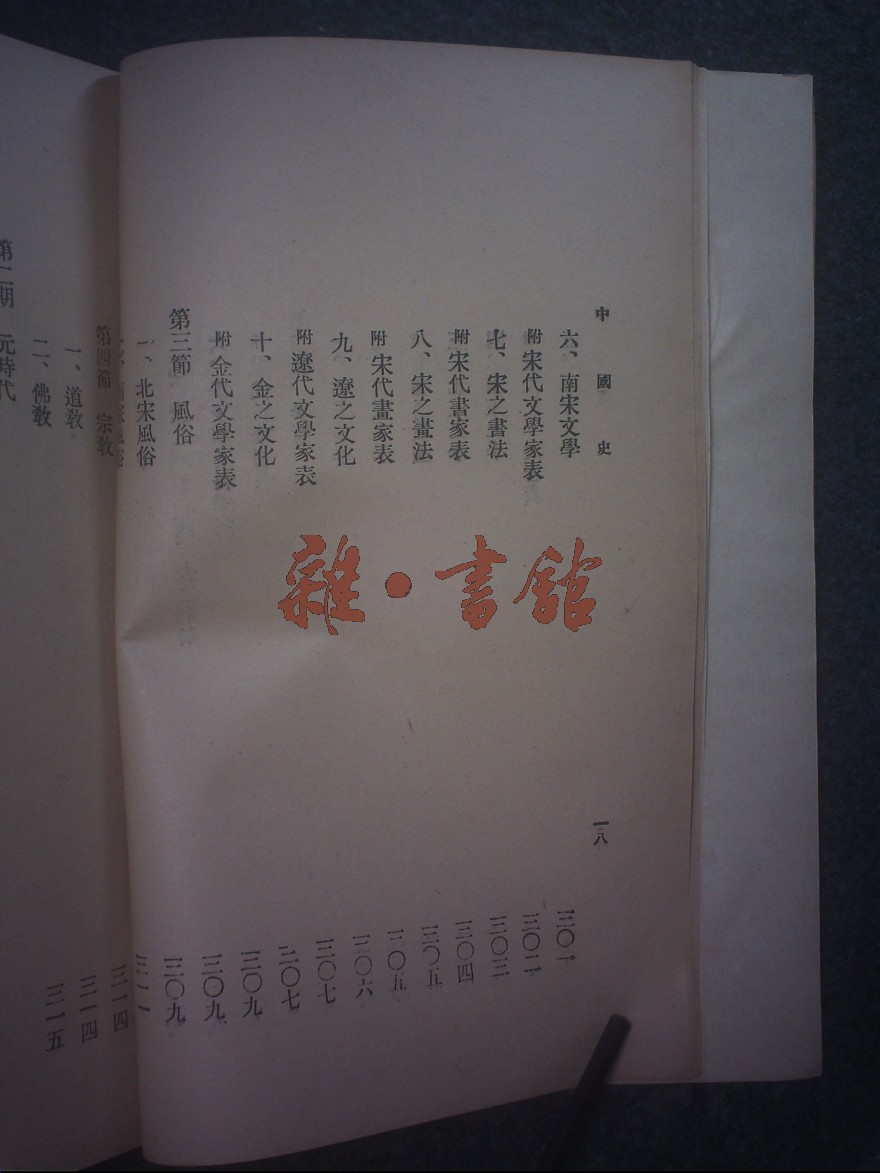 中國史
一八
六、南宋文學 三〇一
附 宋代文學家表 三〇二
七、宋之書法 三〇三
附 宋代書家表 三〇四
八、宋之畫法 三〇五
附 宋代畫家表 三〇五
九、遼之文化 三〇六
附 遼代文學家表 三〇七
十、金之文化 三〇七
附 金代文學家表 三〇九
第三節 風俗 三〇九
一、北宋風俗 三〇九
南宋風俗 三一一
第四節 宗教 三一四
一、道教 三一四
二、佛教 三一五
第二期 元時代
雜·書館